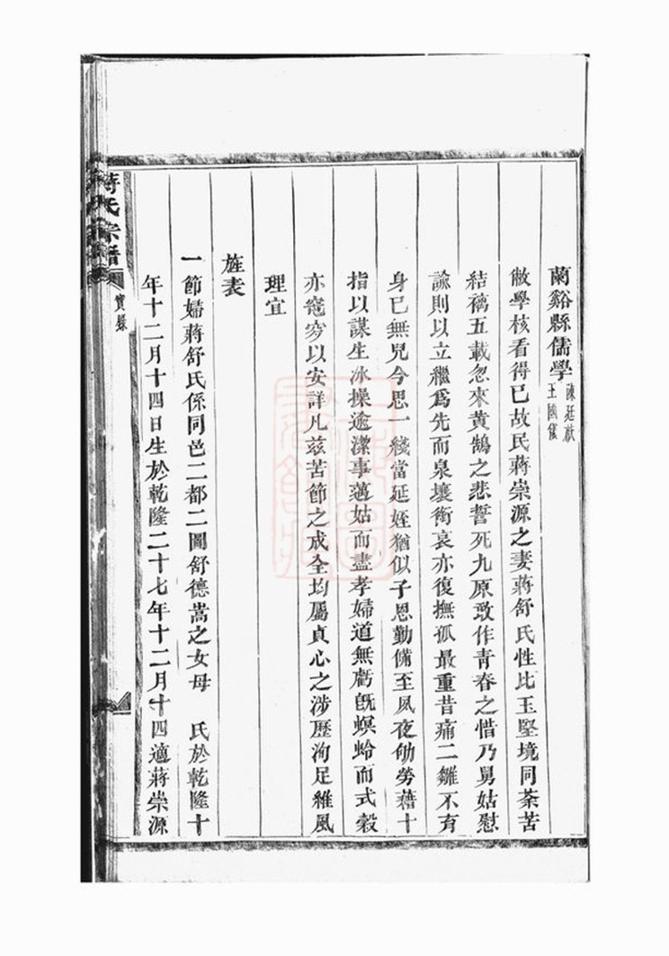 蘭谿縣儒學 陳廷
王國
敝學核看得已故民蔣崇源之妻蔣舒氏性比玉堅境同荼苦
結褵五載忽來黃鵠之悲誓死九原敢作青春之惜乃舅姑慰
諭則以立繼爲先而泉壤銜哀亦復撫孤最重昔痛二雛不有
身已無兒今思一綫當延姪猶似子恩勤備至夙夜劬勞藉十
指以謀生冰操逾潔事邁姑而盡孝婦道無虧旣螟蛉而式穀
亦窀穸以安詳凡兹苦節之成全均屬貞心之涉歷洵足維風
理宜
旌表
一節婦蔣舒氏係同邑二都二圖舒德嵩之女母 氏於乾隆十
年十二月十四日生於乾隆二十七年十二月十四適蔣崇源
蔣氏宗譜 實錄